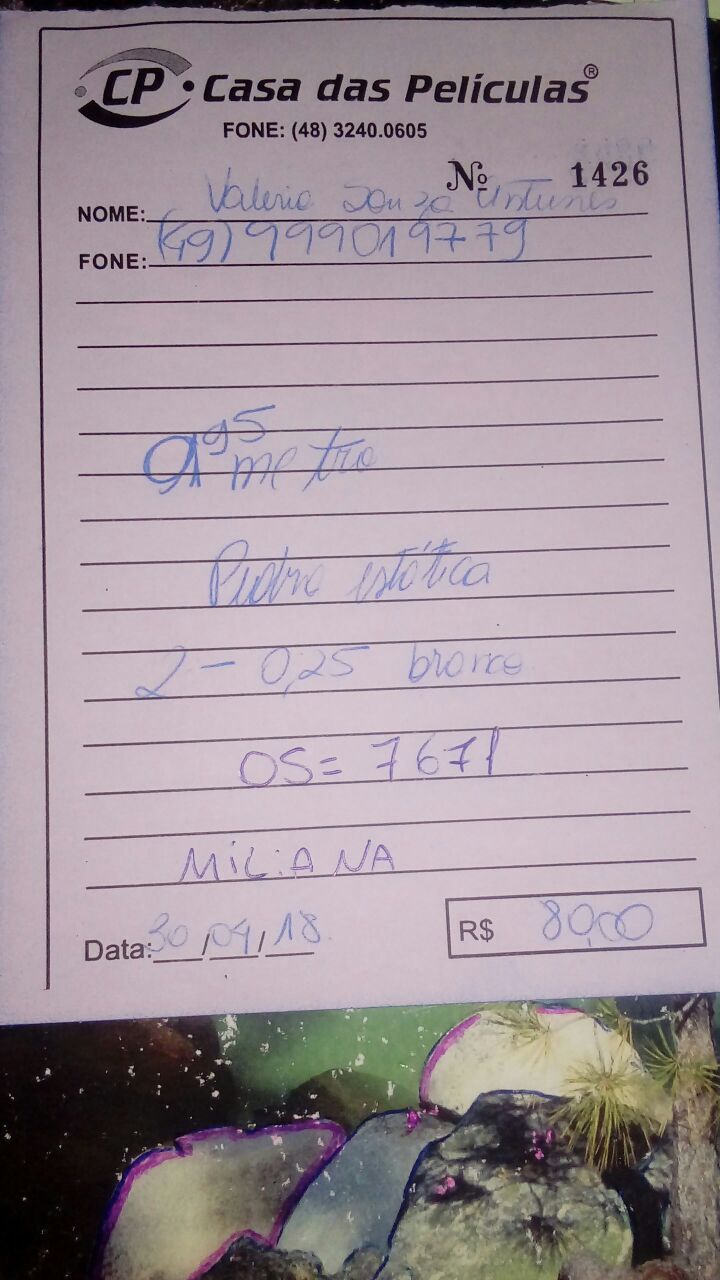 CP Casa das Películas®
FONE: (48) 3240.0605
Nº 1426
NOME: Valerio Souza Antunes
FONE: (49) 999019779
95
metro
estática
2 - 0,25 branco
OS= 7671
MILIANA
Data: 30/04/18 R$ 80,00